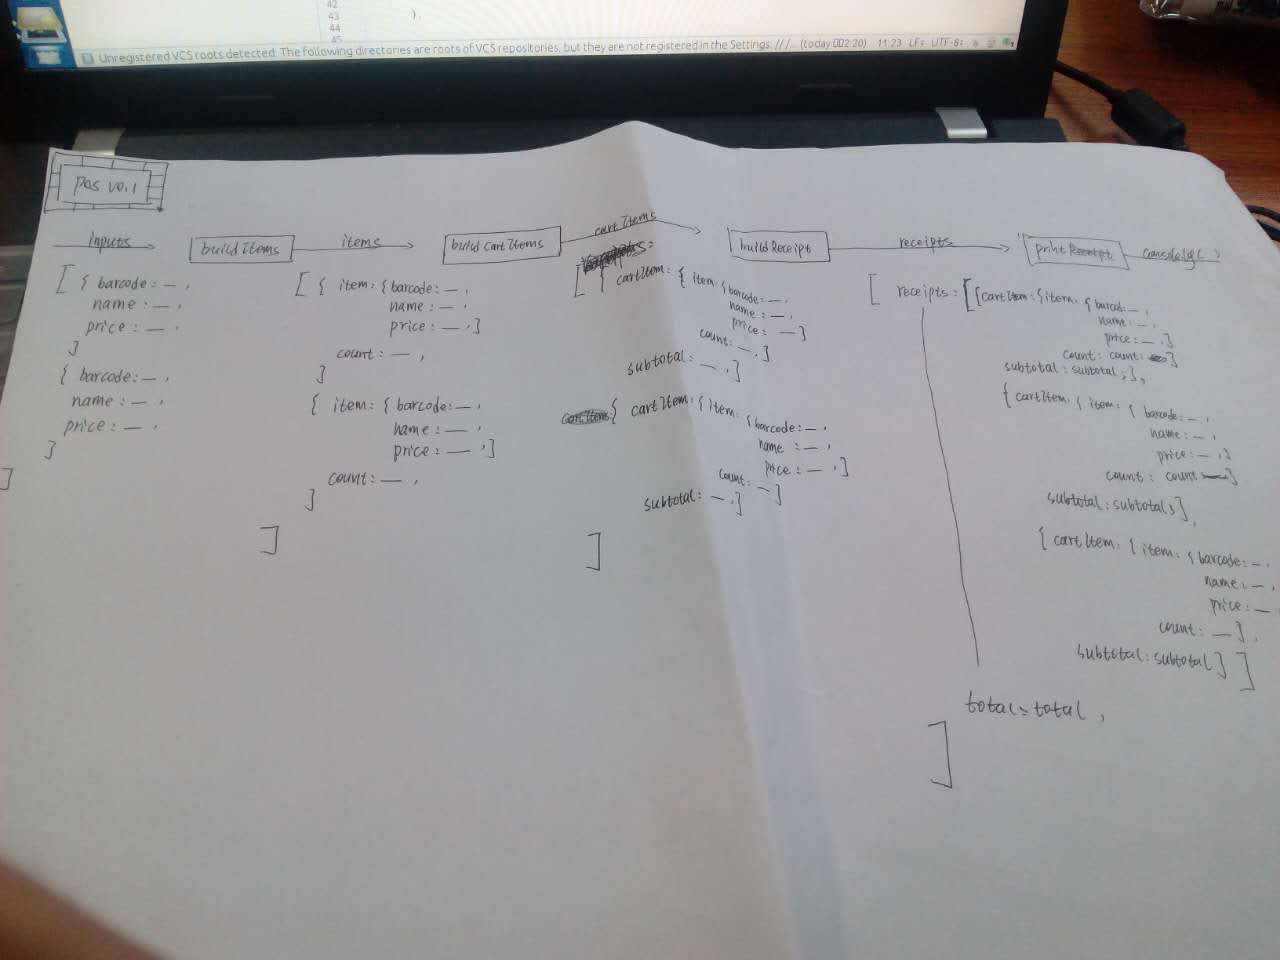 42
43 ).
44
45
Unregistered VCS roots detected: The following directories are roots of VCS repositories, but they are not registered in the Settings: ///... (today 2:20) 11:23 LF: UTF-8:
pos v0.1
inputs
buildItems
items
build CartItems
cartItems
buildReceipt
receipts
print Receipt
console.log( )
[ { barcode: — ,
name: — ,
price: — ,
]
{ barcode: — ,
name: — ,
price: — ,
]
]
[ { item: { barcode: — ,
name: — ,
price: — , ]
count: — ,
]
{ item: { barcode: — ,
name: — ,
price: — , ]
count: — ,
]
]
[ { cartItem: { item: { barcode: — ,
name: — ,
price: — ]
count: — , ]
subtotal: — , ]
{ cartItem: { item: { barcode: — ,
name: — ,
price: — , ]
count: — ]
subtotal: — , ]
]
[ receipts: [ { cartItem: { item: { barcode: — ,
name: — ,
price: — , ]
count: count ]
subtotal: subtotal; ] ,
{ cartItem: { item: { barcode: — ,
name: — ,
price: — , ]
count: count ]
subtotal: subtotal; ] ,
{ cartItem: { item: { barcode: — ,
name: — ,
price: —
count: — ] ,
subtotal: subtotal ] ]
total: total ,
]